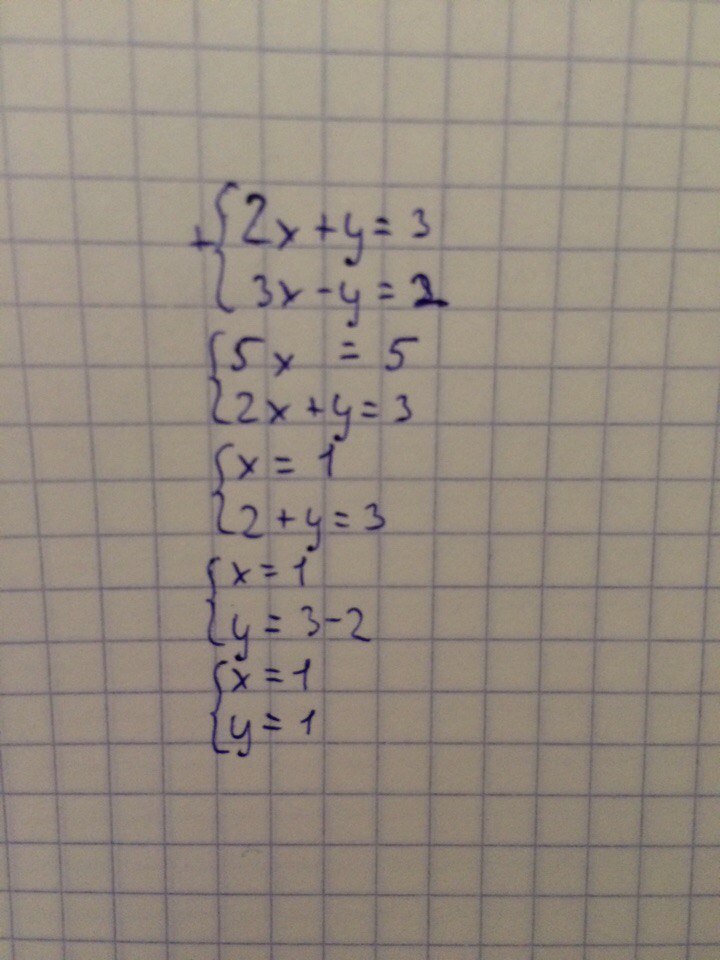 +{2x+y=3
3x-y=2
{5x = 5
2x+y=3
{x=1
2+y=3
{x=1
y=3-2
{x=1
y=1